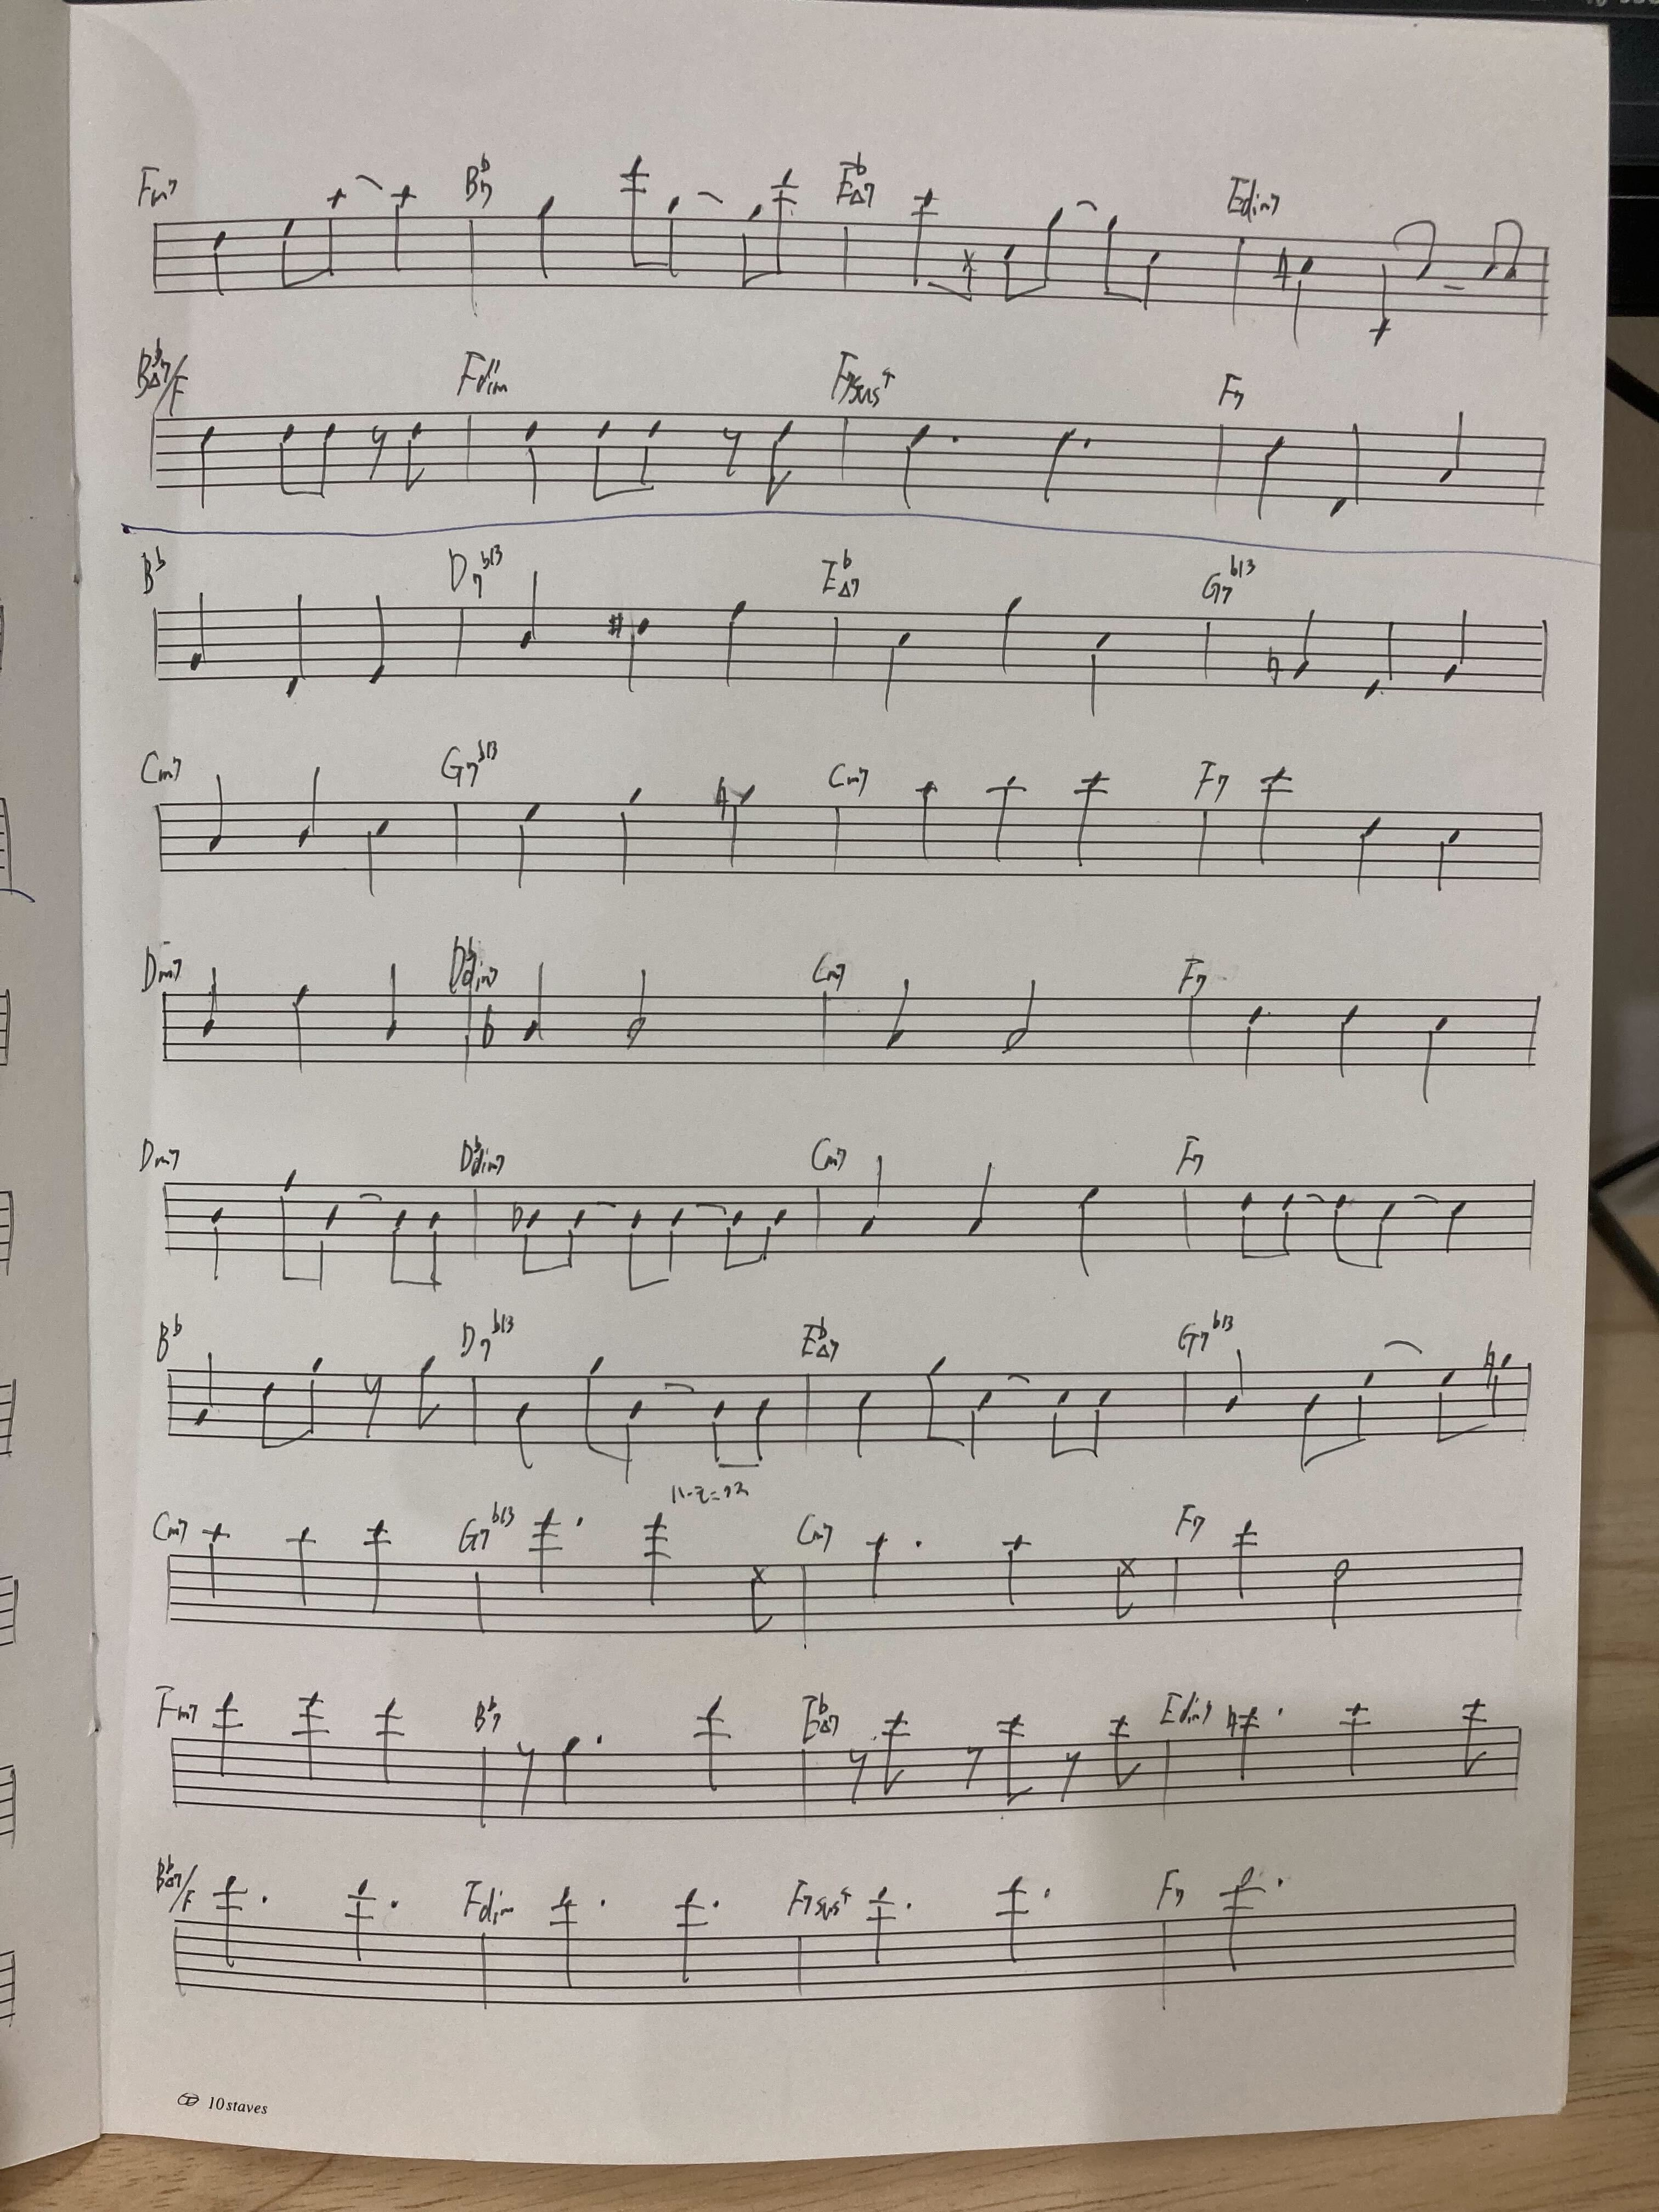 Fm7 B♭7 E♭△7 Edim7
B♭△7/F Fdim F7sus4 F7
B♭ D7♭13 E♭△7 G7♭13
Cm7 G7♭13 Cm7 F7
Dm7 D♭dim7 Cm7 F7
Dm7 D♭dim7 Cm7 F7
B♭ D7♭13 E♭△7 G7♭13
ハーモニクス
Cm7 G7♭13 Cm7 F7
Fm7 B♭7 E♭△7 Edim7
B♭△7/F Fdim F7sus4 F7
10staves